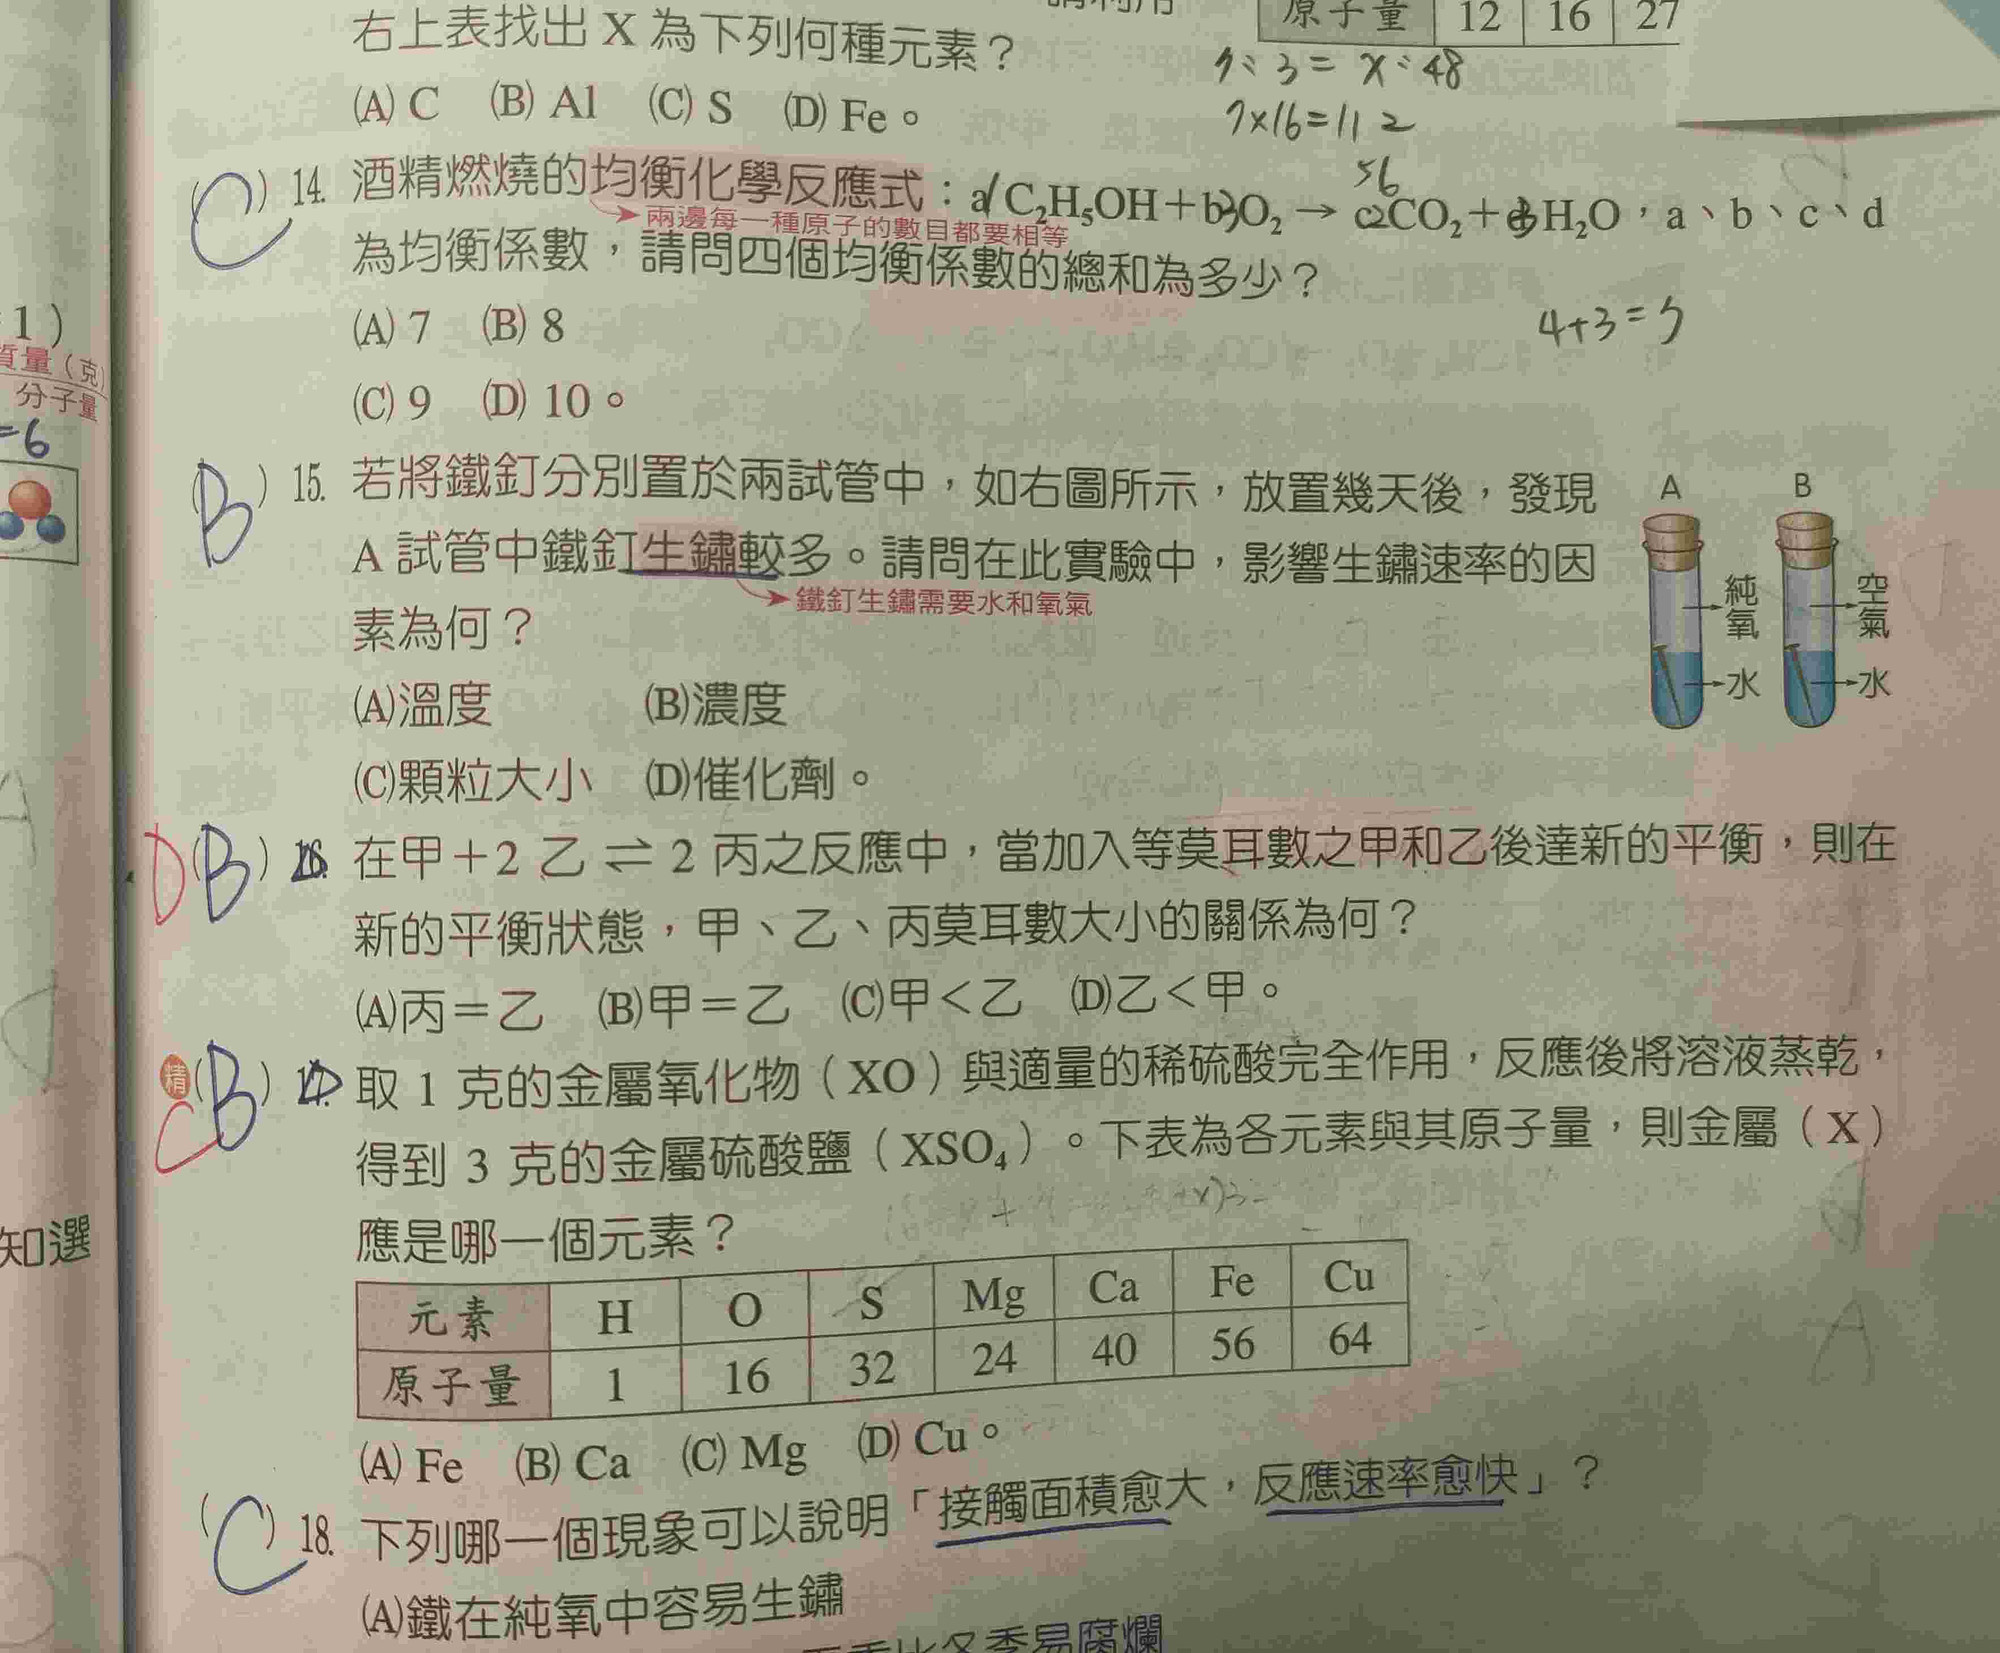 原子量 12 16 27
右上表找出 X 為下列何種元素？
(A) C (B) Al (C) S (D) Fe。
7:3=x:48
7×16=112
56
(C) 14. 酒精燃燒的均衡化學反應式：a1 C₂H₅OH＋b3O₂ → c2CO₂＋d3H₂O，a、b、c、d
兩邊每一種原子的數目都要相等
為均衡係數，請問四個均衡係數的總和為多少？
4+3=7
(A) 7 (B) 8
(C) 9 (D) 10。
1）
質量（克）
分子量
=6
(B) 15. 若將鐵釘分別置於兩試管中，如右圖所示，放置幾天後，發現
A 試管中鐵釘生鏽較多。請問在此實驗中，影響生鏽速率的因
鐵釘生鏽需要水和氧氣
素為何？
(A)溫度 (B)濃度
(C)顆粒大小 (D)催化劑。
A B
純氧 空氣
水 水
D (B) 16. 在甲＋2 乙 ⇌ 2 丙之反應中，當加入等莫耳數之甲和乙後達新的平衡，則在
新的平衡狀態，甲、乙、丙莫耳數大小的關係為何？
(A)丙＝乙 (B)甲＝乙 (C)甲＜乙 (D)乙＜甲。
精 C (B) 17. 取 1 克的金屬氧化物（XO）與適量的稀硫酸完全作用，反應後將溶液蒸乾，
得到 3 克的金屬硫酸鹽（XSO₄）。下表為各元素與其原子量，則金屬（X）
應是哪一個元素？
元素 H O S Mg Ca Fe Cu
原子量 1 16 32 24 40 56 64
(A) Fe (B) Ca (C) Mg (D) Cu。
知選
(C) 18. 下列哪一個現象可以說明「接觸面積愈大，反應速率愈快」？
(A)鐵在純氧中容易生鏽
比冬季易腐爛